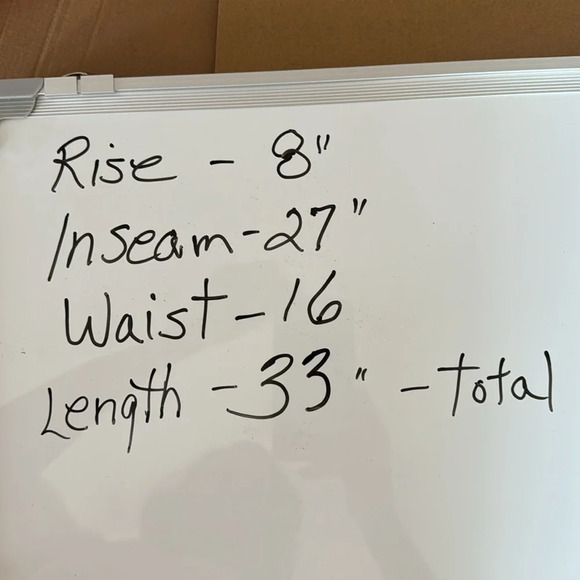 Rise - 8"
Inseam - 27"
Waist - 16
Length - 33" - total